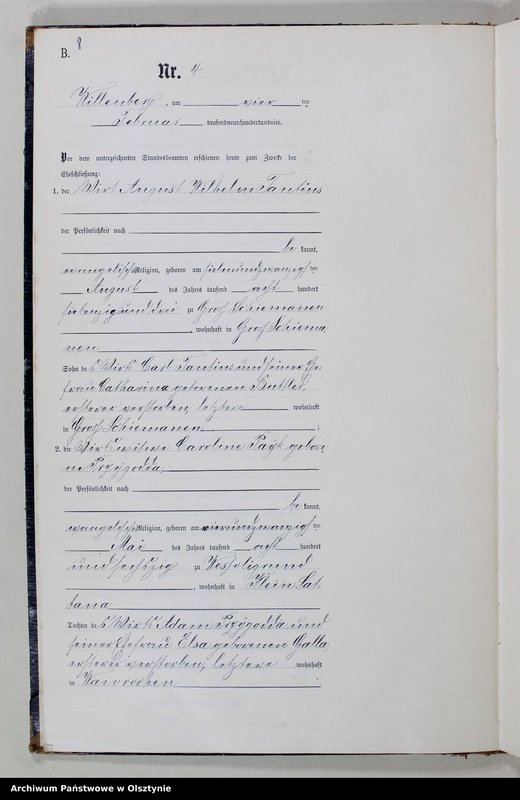 B. 8
Nr. 4
Willenberg, am vier ten
Februar tausendneunhundertundvier.
Vor dem unterzeichneten Standesbeamten erschienen heute zum Zwecke der
Eheschließung:
1. der Wirt August Wilhelm Fantius
der Persönlichkeit nach
be kannt,
evangelischer Religion, geboren am siebenundzwanzigs ten
August des Jahres tausend acht hundert
siebenzig und drei zu Groß Schiemanen
, wohnhaft in Groß Schiema
nen
Sohn des Wirts Carl Fantius und seiner Ehe
frau Catharina geborenen
ersterer verstorben, letztere wohnhaft
in Groß Schiemanen ;
2. die Wirtswitwe Caroline Payk gebore
ne Przygodda,
der Persönlichkeit nach
be kannt,
evangelischer Religion, geboren am vierundzwanzigs ten
Mai des Jahres tausend acht hundert
und sechszig zu Wessoligrund
, wohnhaft in Klein Lat
tana
Tochter des Wirts Adam Przygodda und
seiner Ehefrau Elsa geborenen Galla,
ersterer verstorben, letztere wohnhaft
in Wawrochen
Archiwum Państwowe w Olsztynie